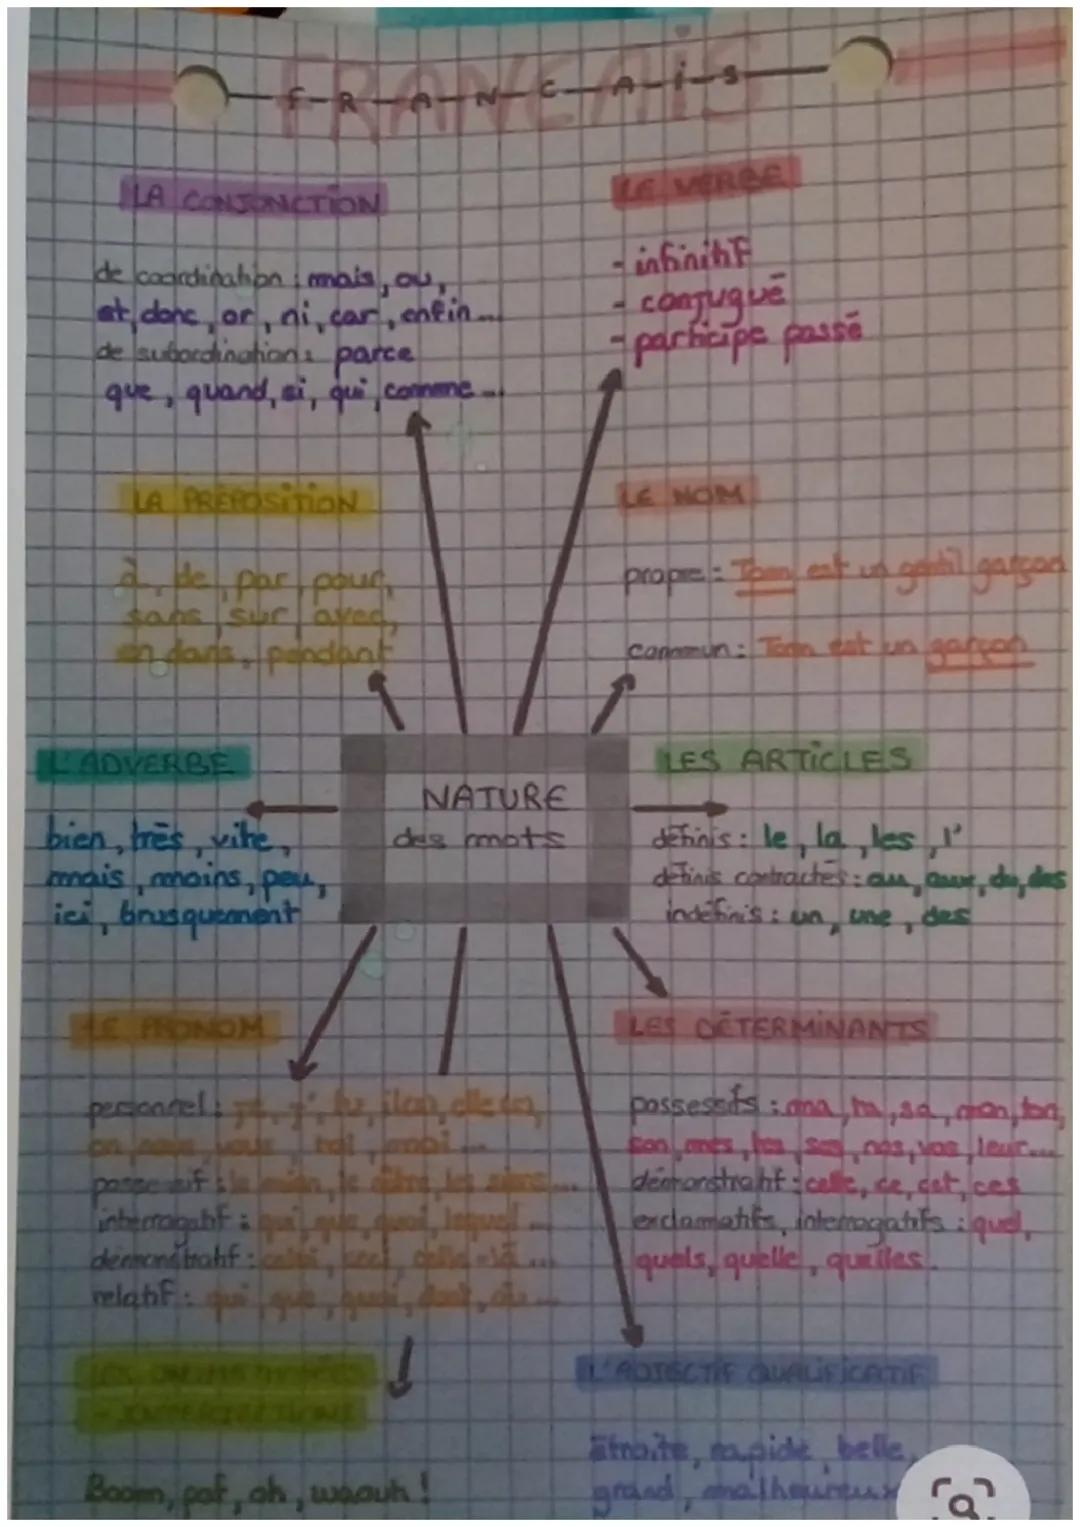 FRANCAIS
F-R-A-N-C-A-i-S
LA CONJONCTION
de coordination : mais, ou,
et, donc, or, ni, car, enfin...
de subordination : parce
que, quand, si, qui, comme...
LE VERBE
- infinitif
- conjugué
- participe passé
LA PRÉPOSITION
à, de, par, pour,
sans, sur, avec,
en dans, pendant
LE NOM
propre : Tom est un gentil garçon
commun : Tom est un garçon
L'ADVERBE
bien, très, vite,
mais, moins, peu,
ici, brusquement
NATURE
des mots
LES ARTICLES
définis : le, la, les, l'
définis contractés : au, aux, du, des
indéfinis : un, une, des
LE PRONOM
personnel : je, j', tu, il(s), elle(s),
on, nous, vous, toi, moi...
possessif : le mien, le nôtre, les siens...
interrogatif : qui, que, quoi, lequel...
démonstratif : celui, ceci, celle-là...
relatif : qui, que, quoi, dont, où...
LES DÉTERMINANTS
possessifs : ma, ta, sa, mon, ton,
son, mes, tes, ses, nos, vos, leur...
démonstratif : cette, ce, cet, ces
exclamatifs, interrogatifs : quel,
quels, quelle, quelles.
LES ONOMATOPÉES
- INTERJECTIONS
Boom, paf, oh, waouh !
L'ADJECTIF QUALIFICATIF
étroite, rapide, belle,
grand, malheureux